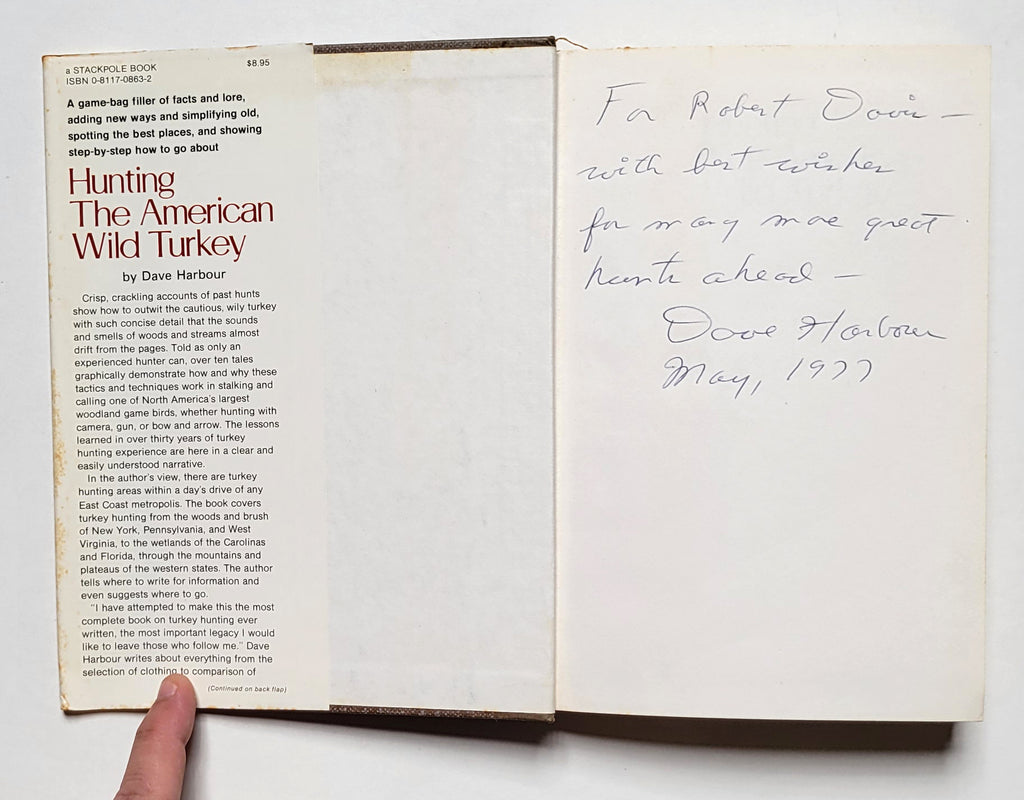 a STACKPOLE BOOK
ISBN 0-8117-0863-2
$8.95
A game-bag filler of facts and lore,
adding new ways and simplifying old,
spotting the best places, and showing
step-by-step how to go about
Hunting
The American
Wild Turkey
by Dave Harbour
Crisp, crackling accounts of past hunts
show how to outwit the cautious, wily turkey
with such concise detail that the sounds
and smells of woods and streams almost
drift from the pages. Told as only an
experienced hunter can, over ten tales
graphically demonstrate how and why these
tactics and techniques work in stalking and
calling one of North America's largest
woodland game birds, whether hunting with
camera, gun, or bow and arrow. The lessons
learned in over thirty years of turkey
hunting experience are here in a clear and
easily understood narrative.
In the author's view, there are turkey
hunting areas within a day's drive of any
East Coast metropolis. The book covers
turkey hunting from the woods and brush
of New York, Pennsylvania, and West
Virginia, to the wetlands of the Carolinas
and Florida, through the mountains and
plateaus of the western states. The author
tells where to write for information and
even suggests where to go.
"I have attempted to make this the most
complete book on turkey hunting ever
written, the most important legacy I would
like to leave those who follow me." Dave
Harbour writes about everything from the
selection of clothing to comparison of
(Continued on back flap)
For Robert Davis –
with best wishes
for many more great
hunts ahead –
Dave Harbour
May, 1977